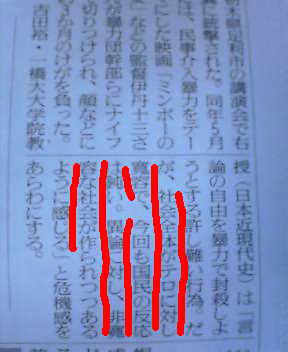 県足利市の講演会で右
に銃撃された。同年5月
は、民事介入暴力をテー
にした映画「ミンボーの
」などの監督伊丹十三さ
が暴力団幹部らにナイフ
切りつけられ、顔などに
か月のけがを負った。
吉田裕・一橋大大学院教
授（日本近現代史）は「言
論の自由を暴力で封殺しよ
うとする許し難い行為。だ
が、社会全体がテロに対し
寛容で、今回も国民の反応
は鈍い。異論に対し、非寛
容な社会が作られつつある
ように感じる」と危機感を
あらわにする。